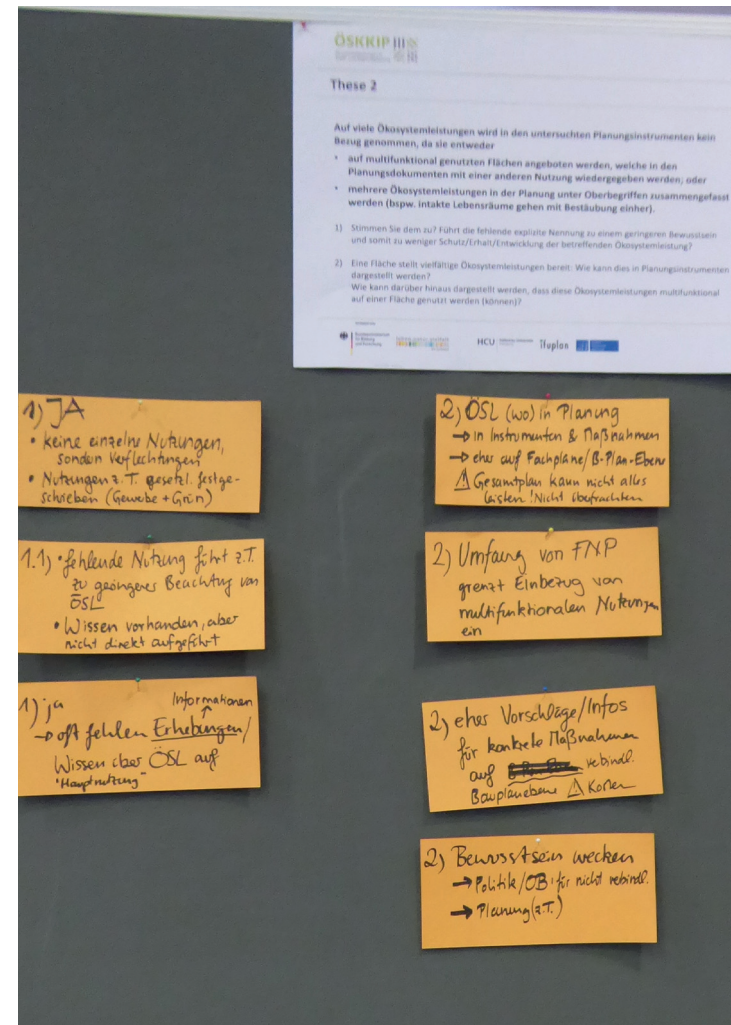 ÖSKKIP
These 2
Auf viele Ökosystemleistungen wird in den untersuchten Planungsinstrumenten kein
Bezug genommen, da sie entweder
• auf multifunktional genutzten Flächen angeboten werden, welche in den
Planungsdokumenten mit einer anderen Nutzung wiedergegeben werden; oder
• mehrere Ökosystemleistungen in der Planung unter Oberbegriffen zusammengefasst
werden (bspw. intakte Lebensräume gehen mit Bestäubung einher).
1) Stimmen Sie dem zu? Führt die fehlende explizite Nennung zu einem geringeren Bewusstsein
und somit zu weniger Schutz/Erhalt/Entwicklung der betreffenden Ökosystemleistung?
2) Eine Fläche stellt vielfältige Ökosystemleistungen bereit: Wie kann dies in Planungsinstrumenten
dargestellt werden?
Wie kann darüber hinaus dargestellt werden, dass diese Ökosystemleistungen multifunktional
auf einer Fläche genutzt werden (können)?
HCU
ifuplan
1) JA
• keine einzelne Nutzungen,
sondern Verflechtungen
• Nutzungen z.T. gesetzl. festge-
schrieben (Gewerbe + Grün)
1.1) • fehlende Nutzung führt z.T.
zu geringerer Beachtung von
ÖSL
• Wissen vorhanden, aber
nicht direkt aufgeführt
1) ja
Informationen
→ oft fehlen Erhebungen/
Wissen über ÖSL auf
"Hauptnutzung"
2) ÖSL (wo) in Planung
→ in Instrumenten & Maßnahmen
→ eher auf Fachpläne/B-Plan-Ebene
⚠ Gesamtplan kann nicht alles
leisten! Nicht überfrachten
2) Umfang von FNP
grenzt Einbezug von
multifunktionalen Nutzungen
ein
2) eher Vorschläge/Infos
für konkrete Maßnahmen
auf verbindl.
Bauplanebene ⚠ Kosten
2) Bewusstsein wecken
→ Politik/OB: für nicht verbindl.
→ Planung (z.T.)